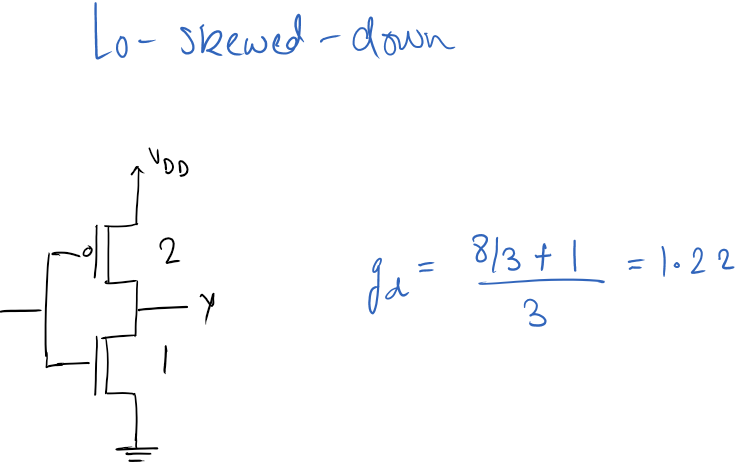 Lo-skewed-down
VDD
2
Y
1
gd = 8/3 + 1 / 3 = 1.22